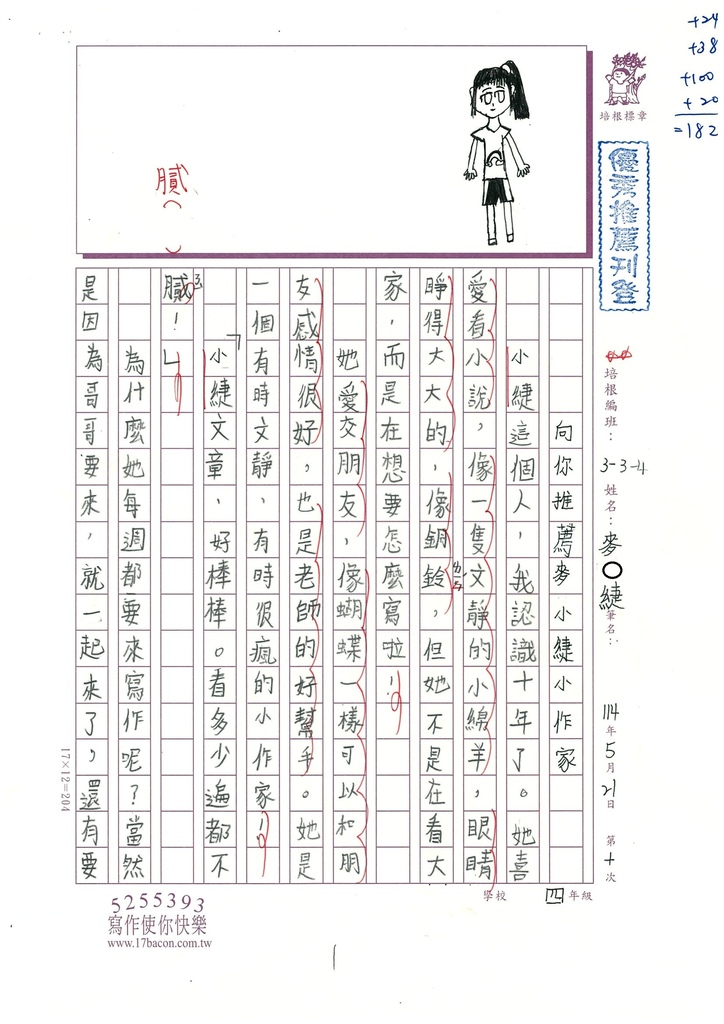 +24
+38
+100
+20
=182
培根標章
優秀推薦刊登
培根編班：3-3-4 姓名：麥〇緁 筆名：
114年5月21日 第十次
學校 四年級
膩（ ）
向你推薦麥小緁小作家
小緁這個人，我認識十年了。她喜
愛看小說，像一隻文靜的小綿羊，眼睛
睜得大大的，像銅鈴，但她不是在看大
ㄌㄧㄥˊ
家，而是在想要怎麼寫啦！
她愛交朋友，像蝴蝶一樣可以和朋
友感情很好，也是老師的好幫手。她是
一個有時文靜、有時很瘋的小作家！
「小緁文章，好棒棒。看多少遍都不
膩！」
為什麼她每週都要來寫作呢？當然
是因為哥哥要來，就一起來了，還有要
17×12=204
5255393
寫作使你快樂
www.17bacon.com.tw
1